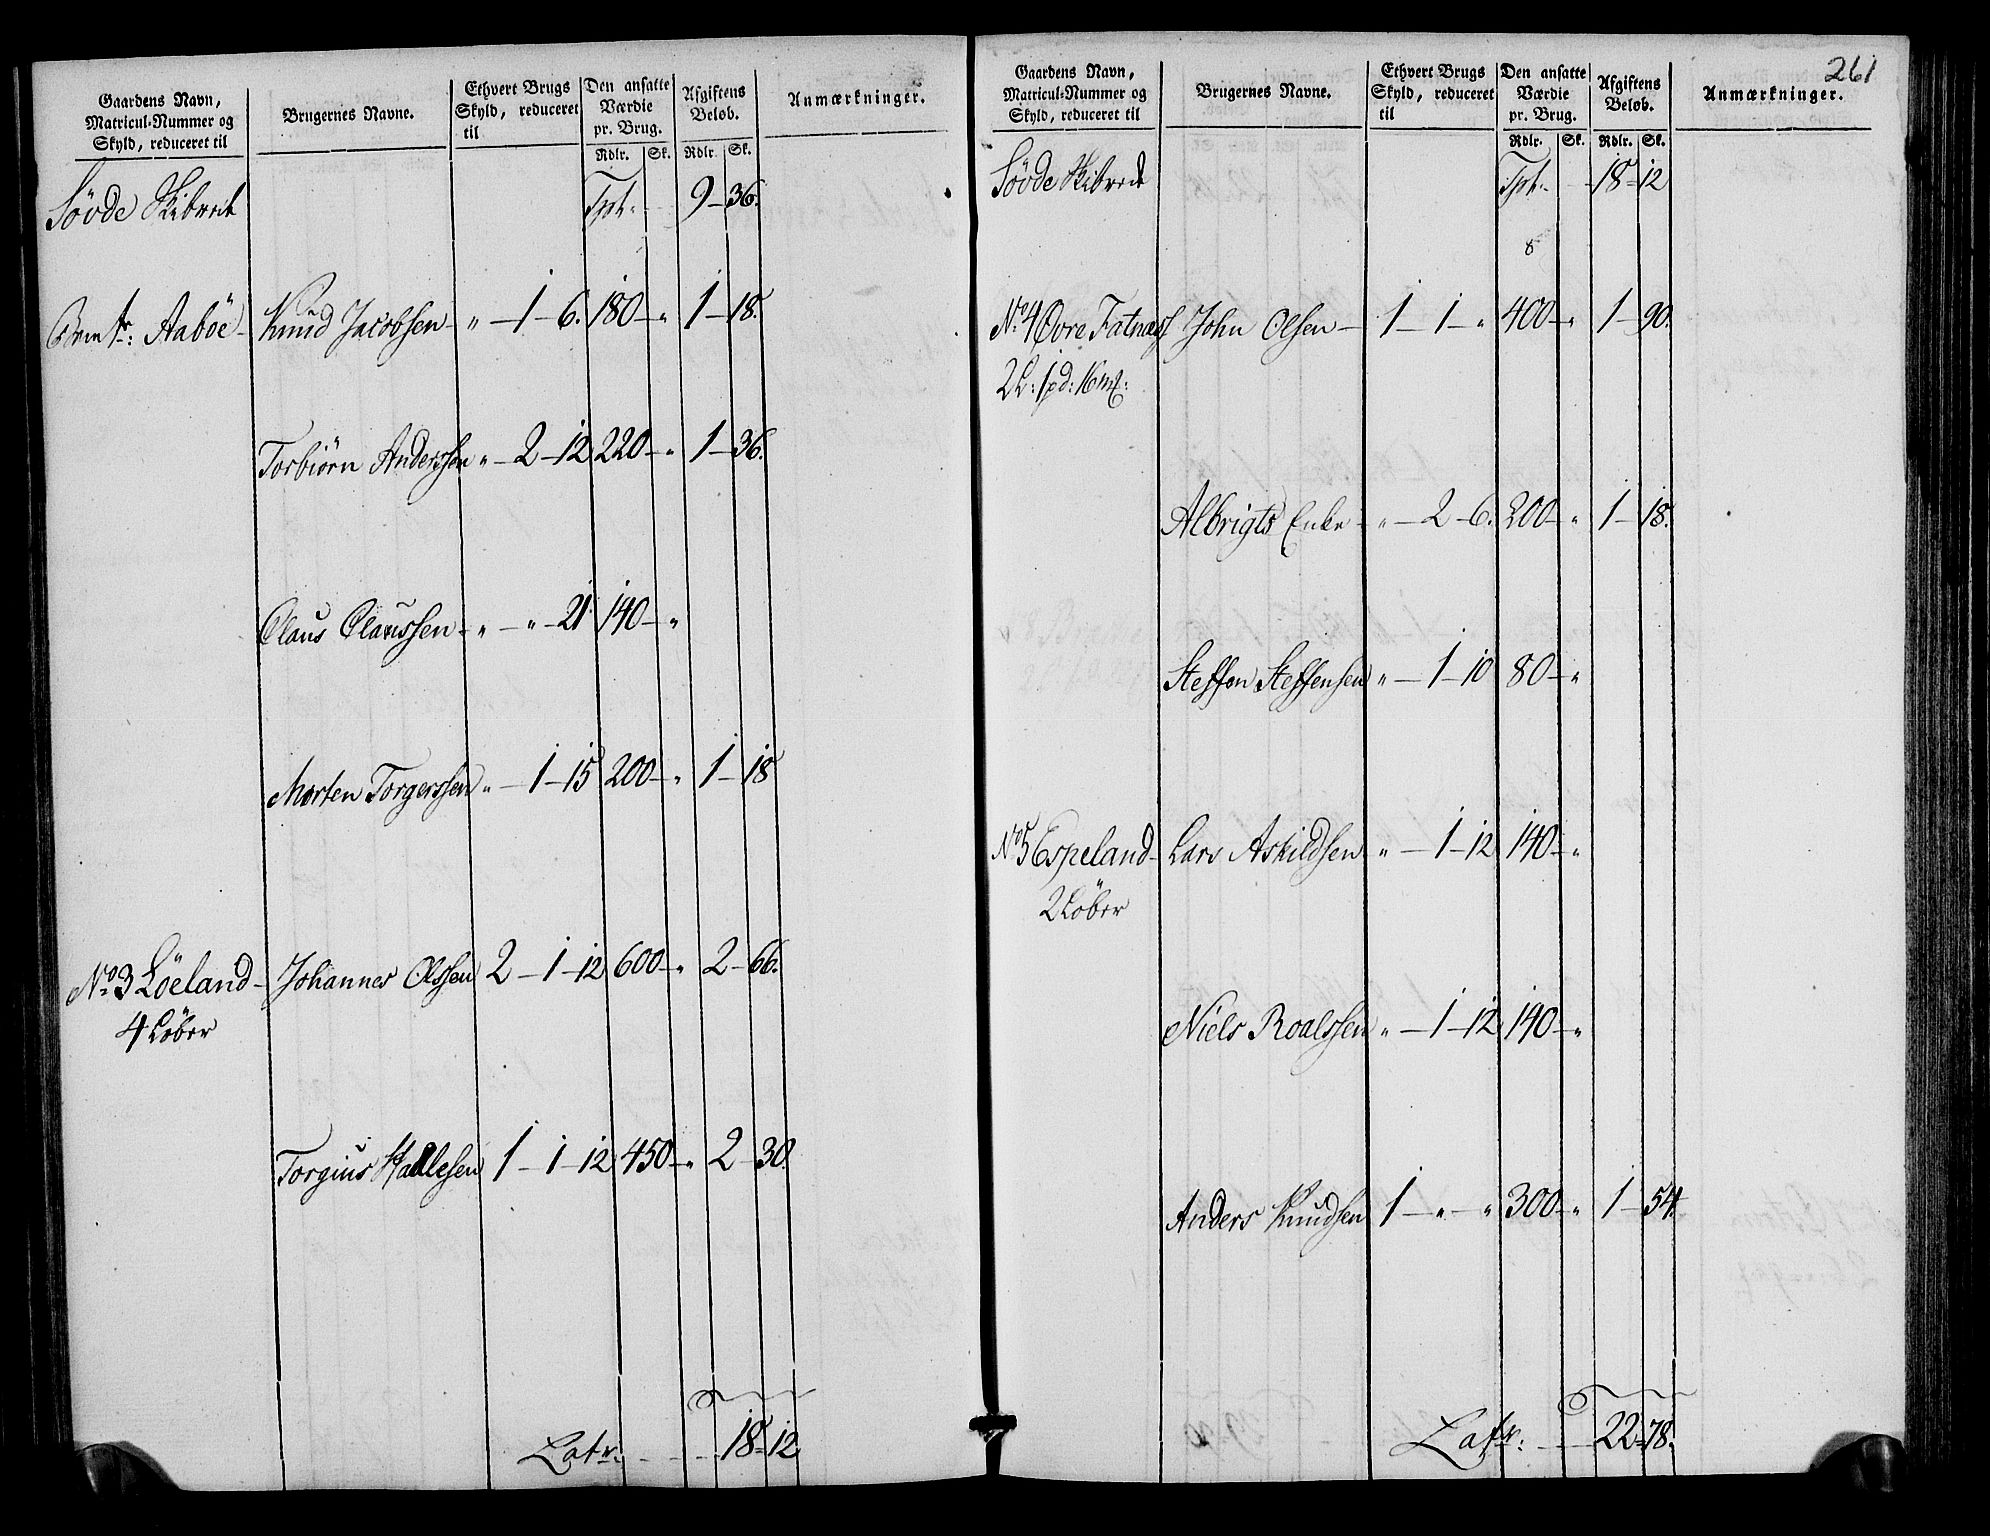 Gaardens Navn, Matricul-Nummer og Skyld, reduceret til | Brugernes Navne. | Ethvert Brugs Skyld, reduceret til | Den ansatte Værdie pr. Brug. Rdlr. Sk. | Afgiftens Beløb. Rdlr. Sk. | Anmærkninger.
Søvde Skibrede Tpt. 9 - 36.
Aaböe - Knud Jacobsen - " - 1 - 6. 180 - " 1 - 18.
Torbiørn Anderssen " - 2 - 12 220 - " 1 - 36.
Claus Claussen - " - " - 21. 140 - "
Morten Torgerssen " - 1 - 15 200 - " 1 - 18
No 3 Löeland - Johannes Olssen 2 - 1 - 12 600 - " 2 - 66.
4 Løber
Torgius Hallesen 1 - 1 - 12 450 - " 2 - 30.
Latr: 18 - 12
261
Gaardens Navn, Matricul-Nummer og Skyld, reduceret til | Brugernes Navne. | Ethvert Brugs Skyld, reduceret til | Den ansatte Værdie pr. Brug. Rdlr. Sk. | Afgiftens Beløb. Rdlr. Sk. | Anmærkninger.
Søvde Skibrede Tpt. 18 - 12
8
No 4 Øvre Fatnæss John Olsen - 1 - 1 - " 400 - " 1 - 90.
2 L: 1 pd: 16 mk:
Albrigts Enke - " - 2 - 6. 200 - " 1 - 18.
Steffen Steffensen " - 1 - 10 80 - "
No 5 Espeland - Lars Askildsen " - 1 - 12 140 - "
2 Løber
Niels Roalssen " - 1 - 12 140 - "
Anders Knudsen 1 - " - " 300 - " 1 - 54.
Latr: 22 - 78.